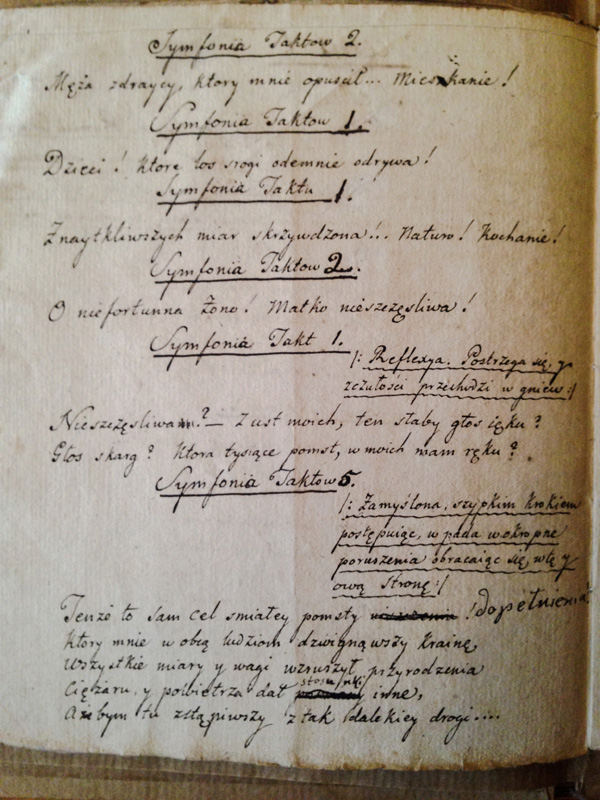 Symfonia Taktow 2.
Męża zdraycy, ktory mnie opuścił... Mieszkanie!
Symfonia Taktow 1.
Dzieci! Ktore los srogi odemnie odrywa!
Symfonia Taktu 1.
Znaytkliwszych miar skrzywdzona!... Naturo! Kochanie!
Symfonia Taktow 2.
O niefortunna Żono! Matko nieszczęsliwa!
Symfonia Takt 1.
/: Reflexya. Postrzega się, y
zczułości przechodzi w gniew :/
Nieszczęsliwa? — Z ust moich, ten słaby głos ięku?
Głos skarg? Ktora tysiące pomst, w moich mam ręku?
Symfonia Taktow 5.
/: Zamyślona, szypkim krokiem
postępuiąc, w pada wokropne
poruszenia obracaiąc się, wtę y
ową stronę :/
Tenże to sam cel smiałey pomsty ! dopełnienia!
Ktory mnie w obcą ludziom dzwignąwszy krainę,
Wszystkie miary y wagi wzruszył przyrodzenia
Ciężaru, y powietrza dał stosunki inne,
Ażebym tu zstąpiwszy z tak dalekiey drogi....